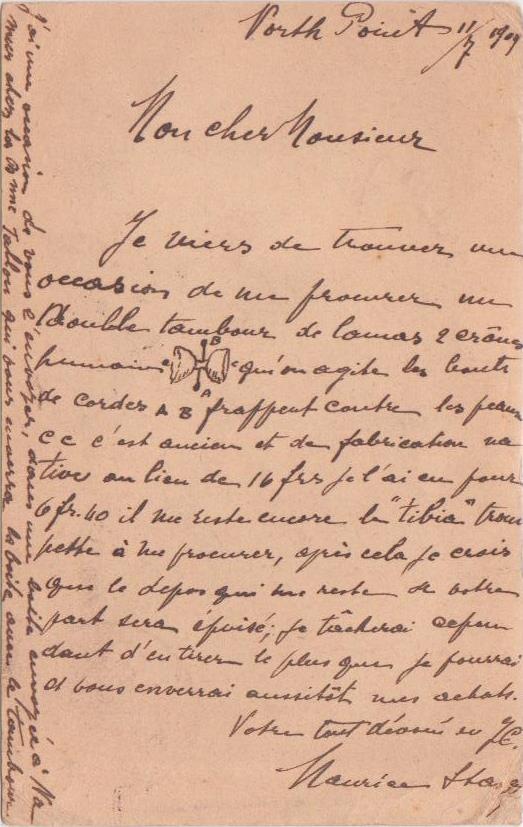 North Point 11/7 1909
Mon cher Monsieur
Je viens de trouver une
occasion de me procurer un
Double tambour de lamas 2 crânes
humains qu'on agite les bouts
B
c c
A
de cordes A B frappent contre les peaux
c c c'est ancien et de fabrication na
tive au lieu de 16 frs je l'ai eu pour
6 fr. 40 il me reste encore la "tibia" trom
pette à me procurer, après cela je crois
que le depos qui me reste de votre
part sera épuisé; je tâcherai cepen
dant d'en tirer le plus que je pourrai
et vous enverrai aussitôt mes achats.
Votre tout dévoué en J.C.
Maurice
J'ai une occasion de vous l'envoyer, dans une boite envoyée à Na
mur chez les Tallon qui vous enverra la boite avec le tambour